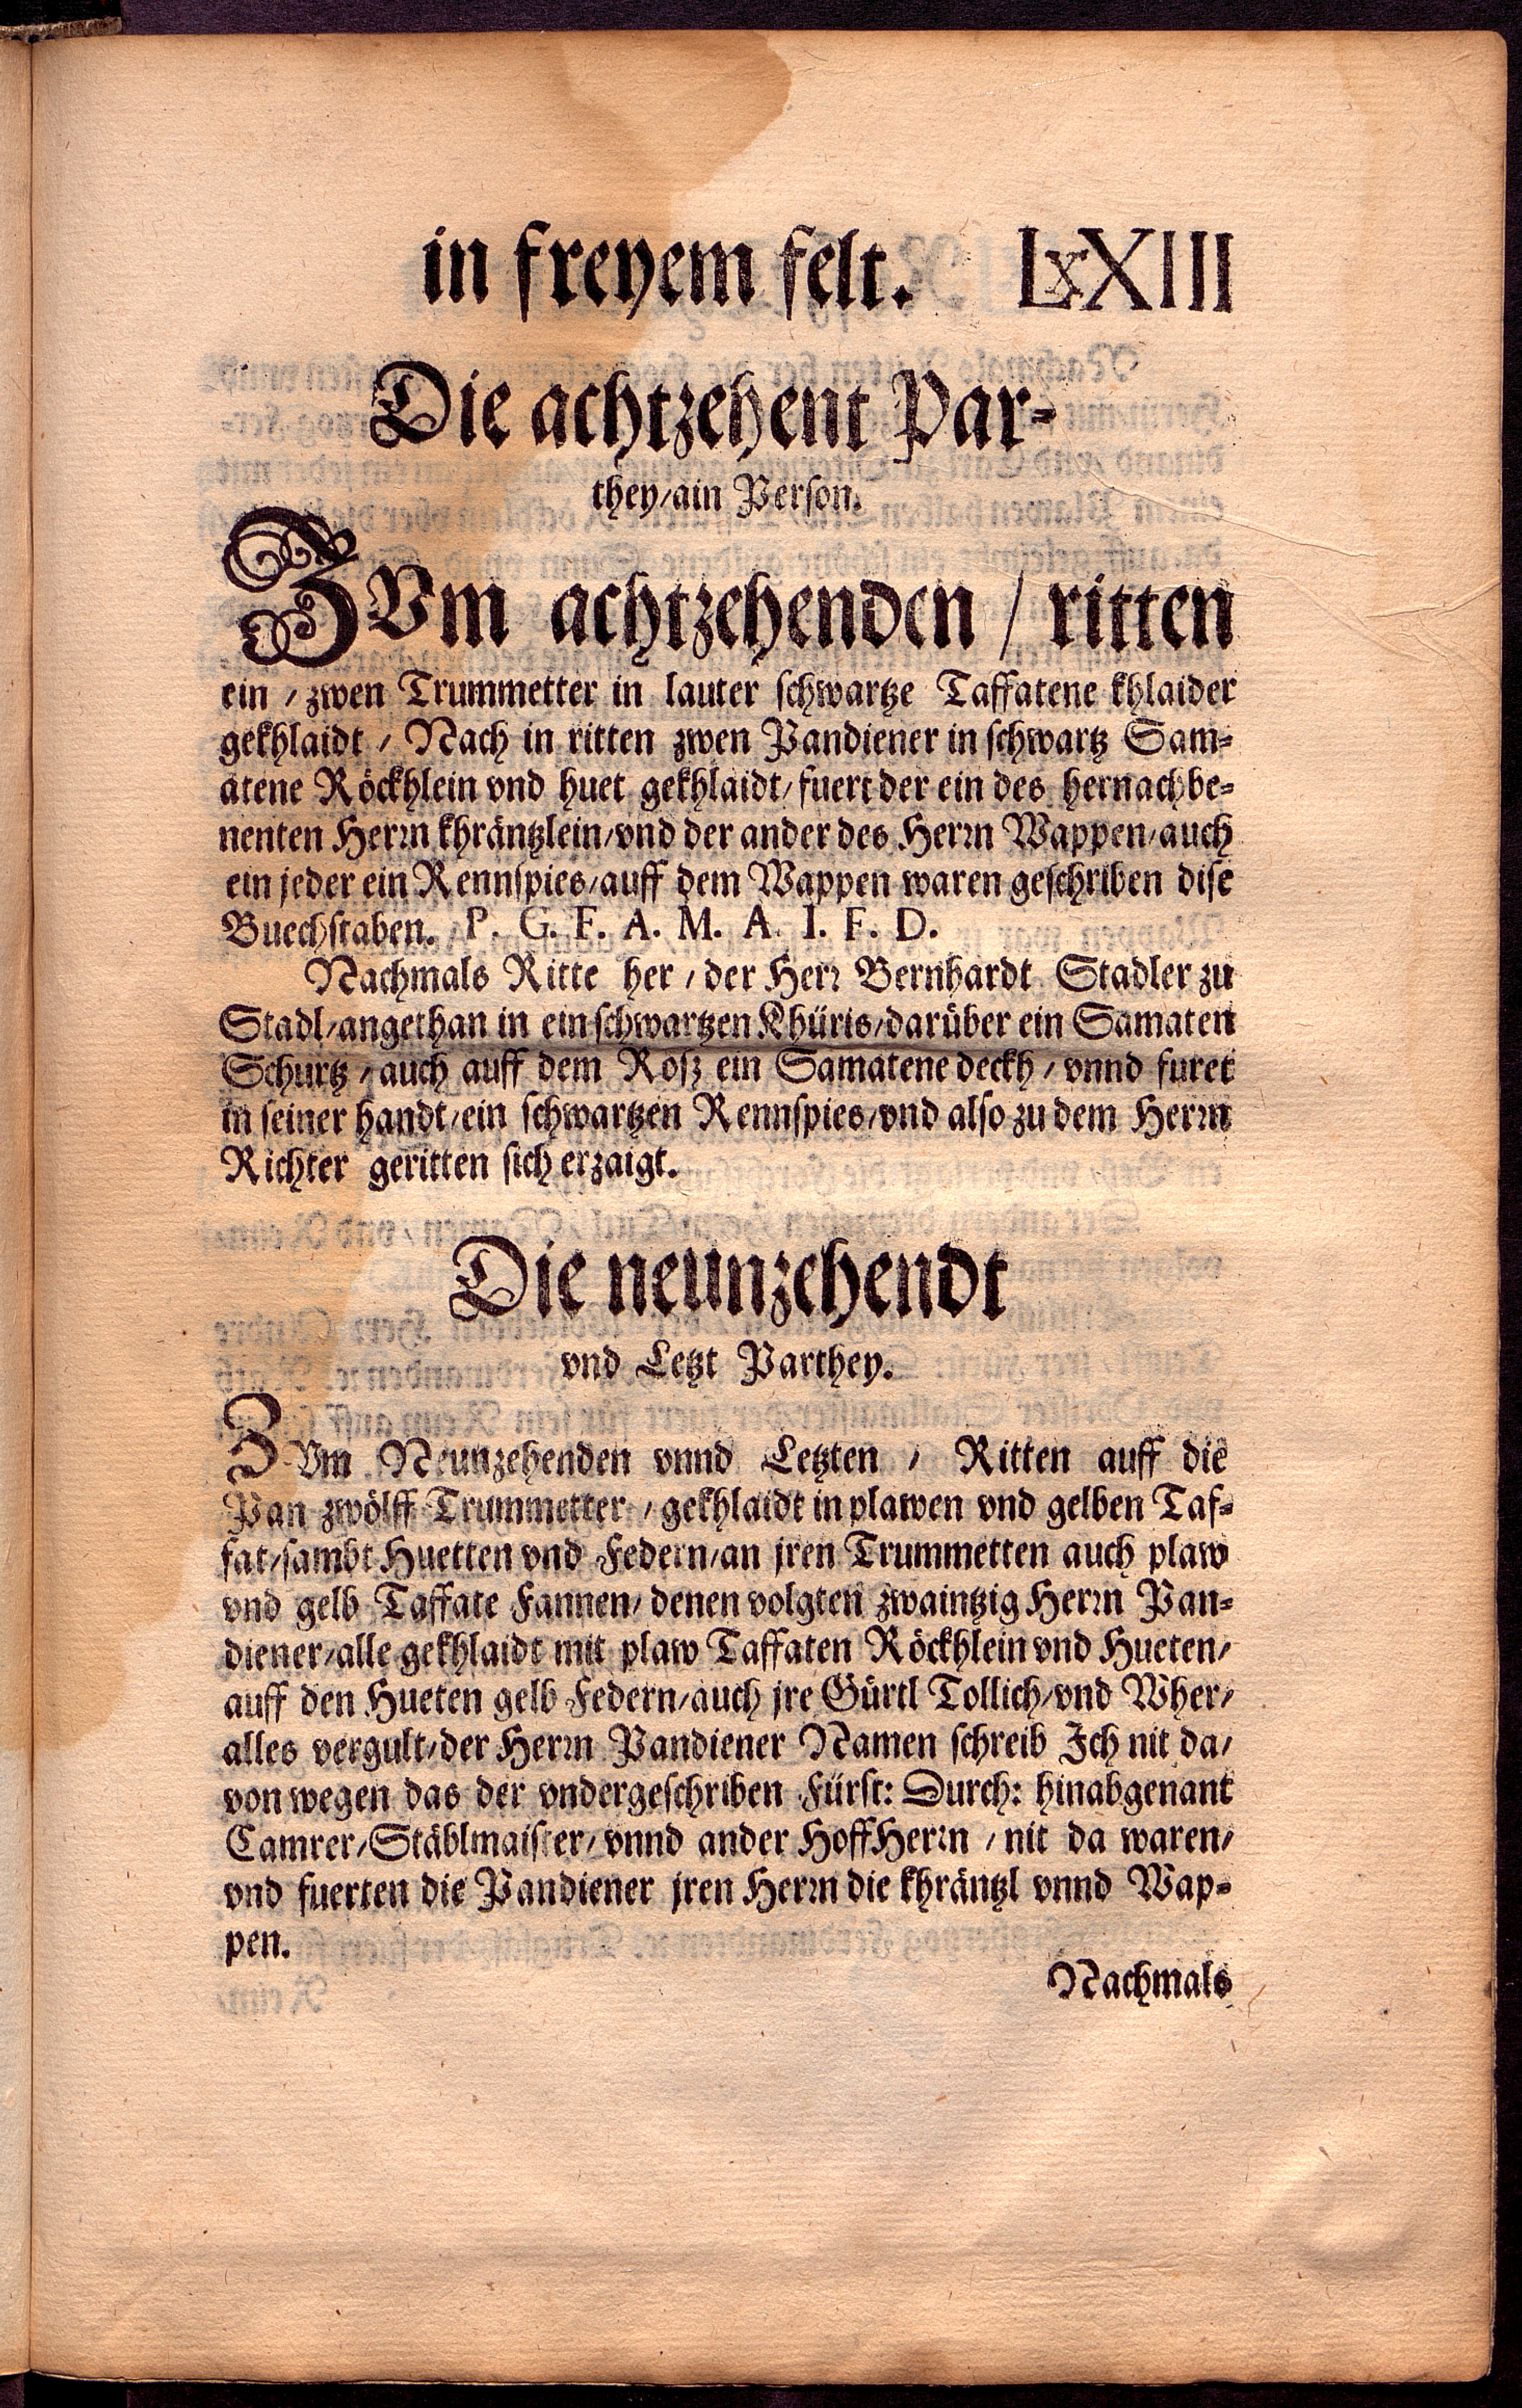 in freyem felt. LxXIII
Die achtzehent Par-
they/ain Person.
ZVm achtzehenden / ritten
ein / zwen Trummetter in lauter schwartze Taffatene khlaider
gekhlaidt / Nach in ritten zwen Pandiener in schwartz Sam-
atene Röckhlein vnd huet gekhlaidt/fuert der ein des hernachbe-
nenten Herrn khräntzlein/vnd der ander des Herrn Wappen/auch
ein jeder ein Rennspies/auff dem Wappen waren geschriben dise
Buechstaben. P. G. F. A. M. A. I. F. D.
Nachmals Ritte her / der Herr Bernhardt Stadler zu
Stadl/angethan in ein schwartzen Khüris/darüber ein Samaten
Schurtz / auch auff dem Rosz ein Samatene deckh / vnnd furet
in seiner handt/ein schwartzen Rennspies/vnd also zu dem Herrn
Richter geritten sich erzaigt.
Die neunzehendt
vnd Letzt Parthey.
ZVm Neunzehenden vnnd Letzten / Ritten auff die
Pan zwölff Trummetter / gekhlaidt in plawen vnd gelben Taf-
fat/sambt Huetten vnd Federn/an jren Trummetten auch plaw
vnd gelb Taffate Fannen/denen volgten zwaintzig Herrn Pan-
diener/alle gekhlaidt mit plaw Taffaten Röckhlein vnd Hueten/
auff den Hueten gelb Federn/auch jre Gürtl Tollich/vnd Wher/
alles vergult/der Herrn Pandiener Namen schreib Ich nit da/
von wegen das der vndergeschriben Fürst: Durch: hinabgenant
Camrer/Stäblmaister/vnnd ander HoffHerrn / nit da waren/
vnd fuerten die Pandiener jren Herrn die khräntzl vnnd Wap-
pen.
Nachmals